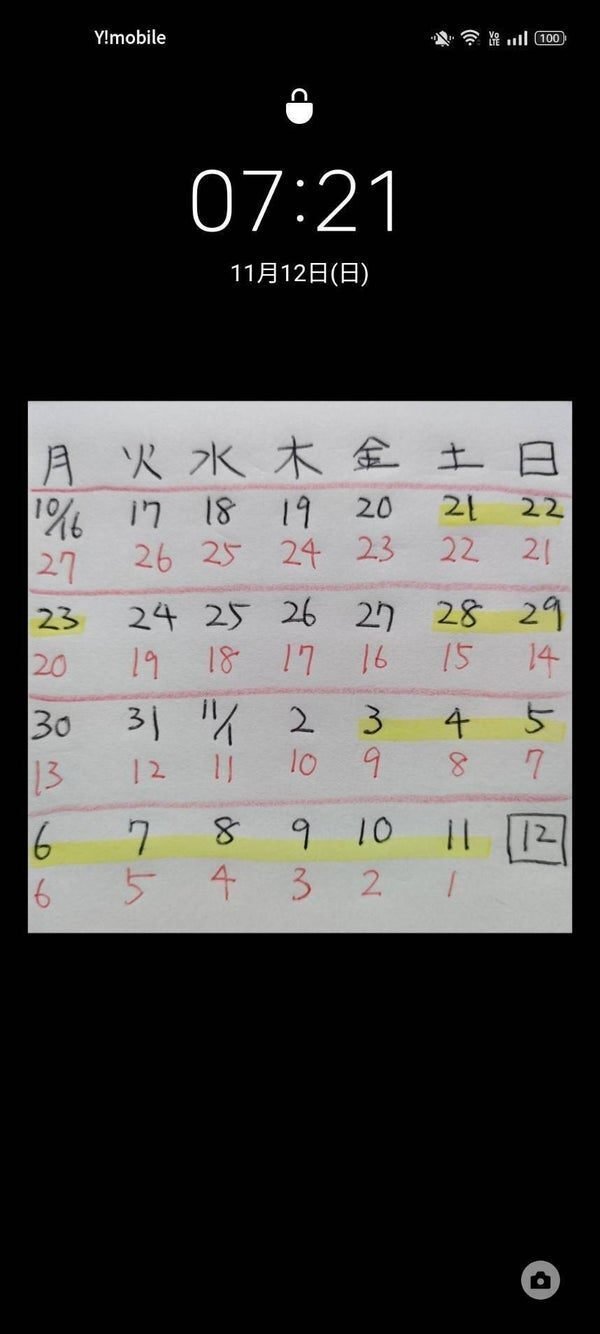 Y!mobile Vo LTE 100
07:21
11月12日(日)
月 火 水 木 金 土 日
10/16 17 18 19 20 21 22
27 26 25 24 23 22 21
23 24 25 26 27 28 29
20 19 18 17 16 15 14
30 31 11/1 2 3 4 5
13 12 11 10 9 8 7
6 7 8 9 10 11 12
6 5 4 3 2 1